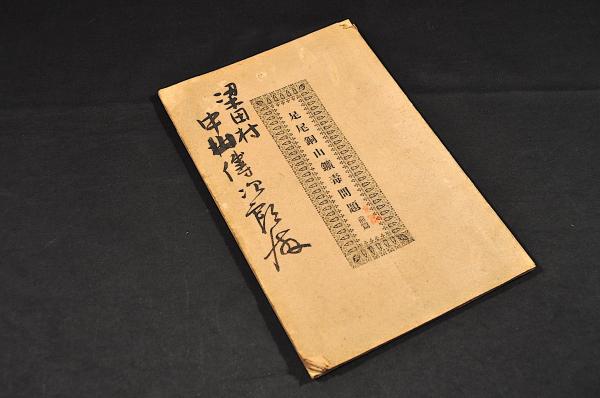 足尾銅山鑛毒問題
梁田村
中山傳次郎